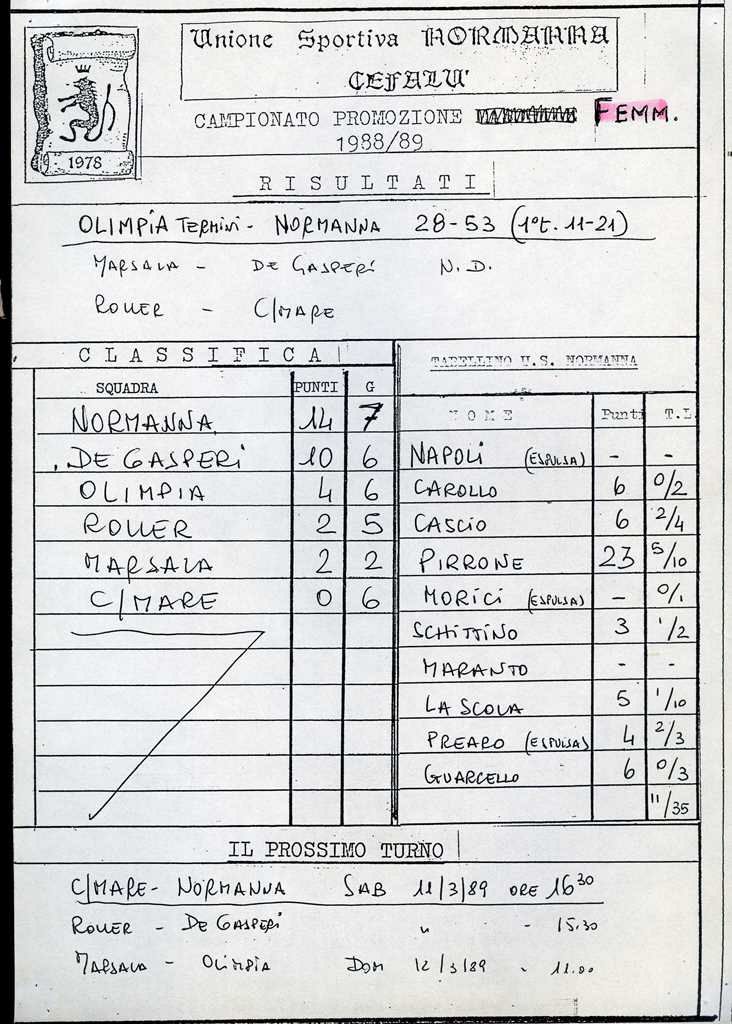 Unione Sportiva NORMANNA
CEFALU'
1978
CAMPIONATO PROMOZIONE FEMM.
1988/89
RISULTATI
OLIMPIA TERMINI - NORMANNA 28-53 (1°t. 11-21)
MARSALA - DE GASPERI N.D.
ROLLER - C/MARE
CLASSIFICA
SQUADRA PUNTI G
NORMANNA 14 7
DE GASPERI 10 6
OLIMPIA 4 6
ROLLER 2 5
MARSALA 2 2
C/MARE 0 6
TABELLINO U.S. NORMANNA
NOME Punti T.L.
NAPOLI (ESPULSA) - -
CAROLLO 6 0/2
CASCIO 6 2/4
PIRRONE 23 5/10
MORICI (ESPULSA) - 0/1
SCHITTINO 3 1/2
MARANTO - -
LA SCOLA 5 1/10
PREARO (ESPULSA) 4 2/3
GUARCELLO 6 0/3
11/35
IL PROSSIMO TURNO
C/MARE - NORMANNA SAB 11/3/89 ORE 16 30
ROLLER - DE GASPERI " - 15.30
MARSALA - OLIMPIA DOM 12/3/89 - 11.00